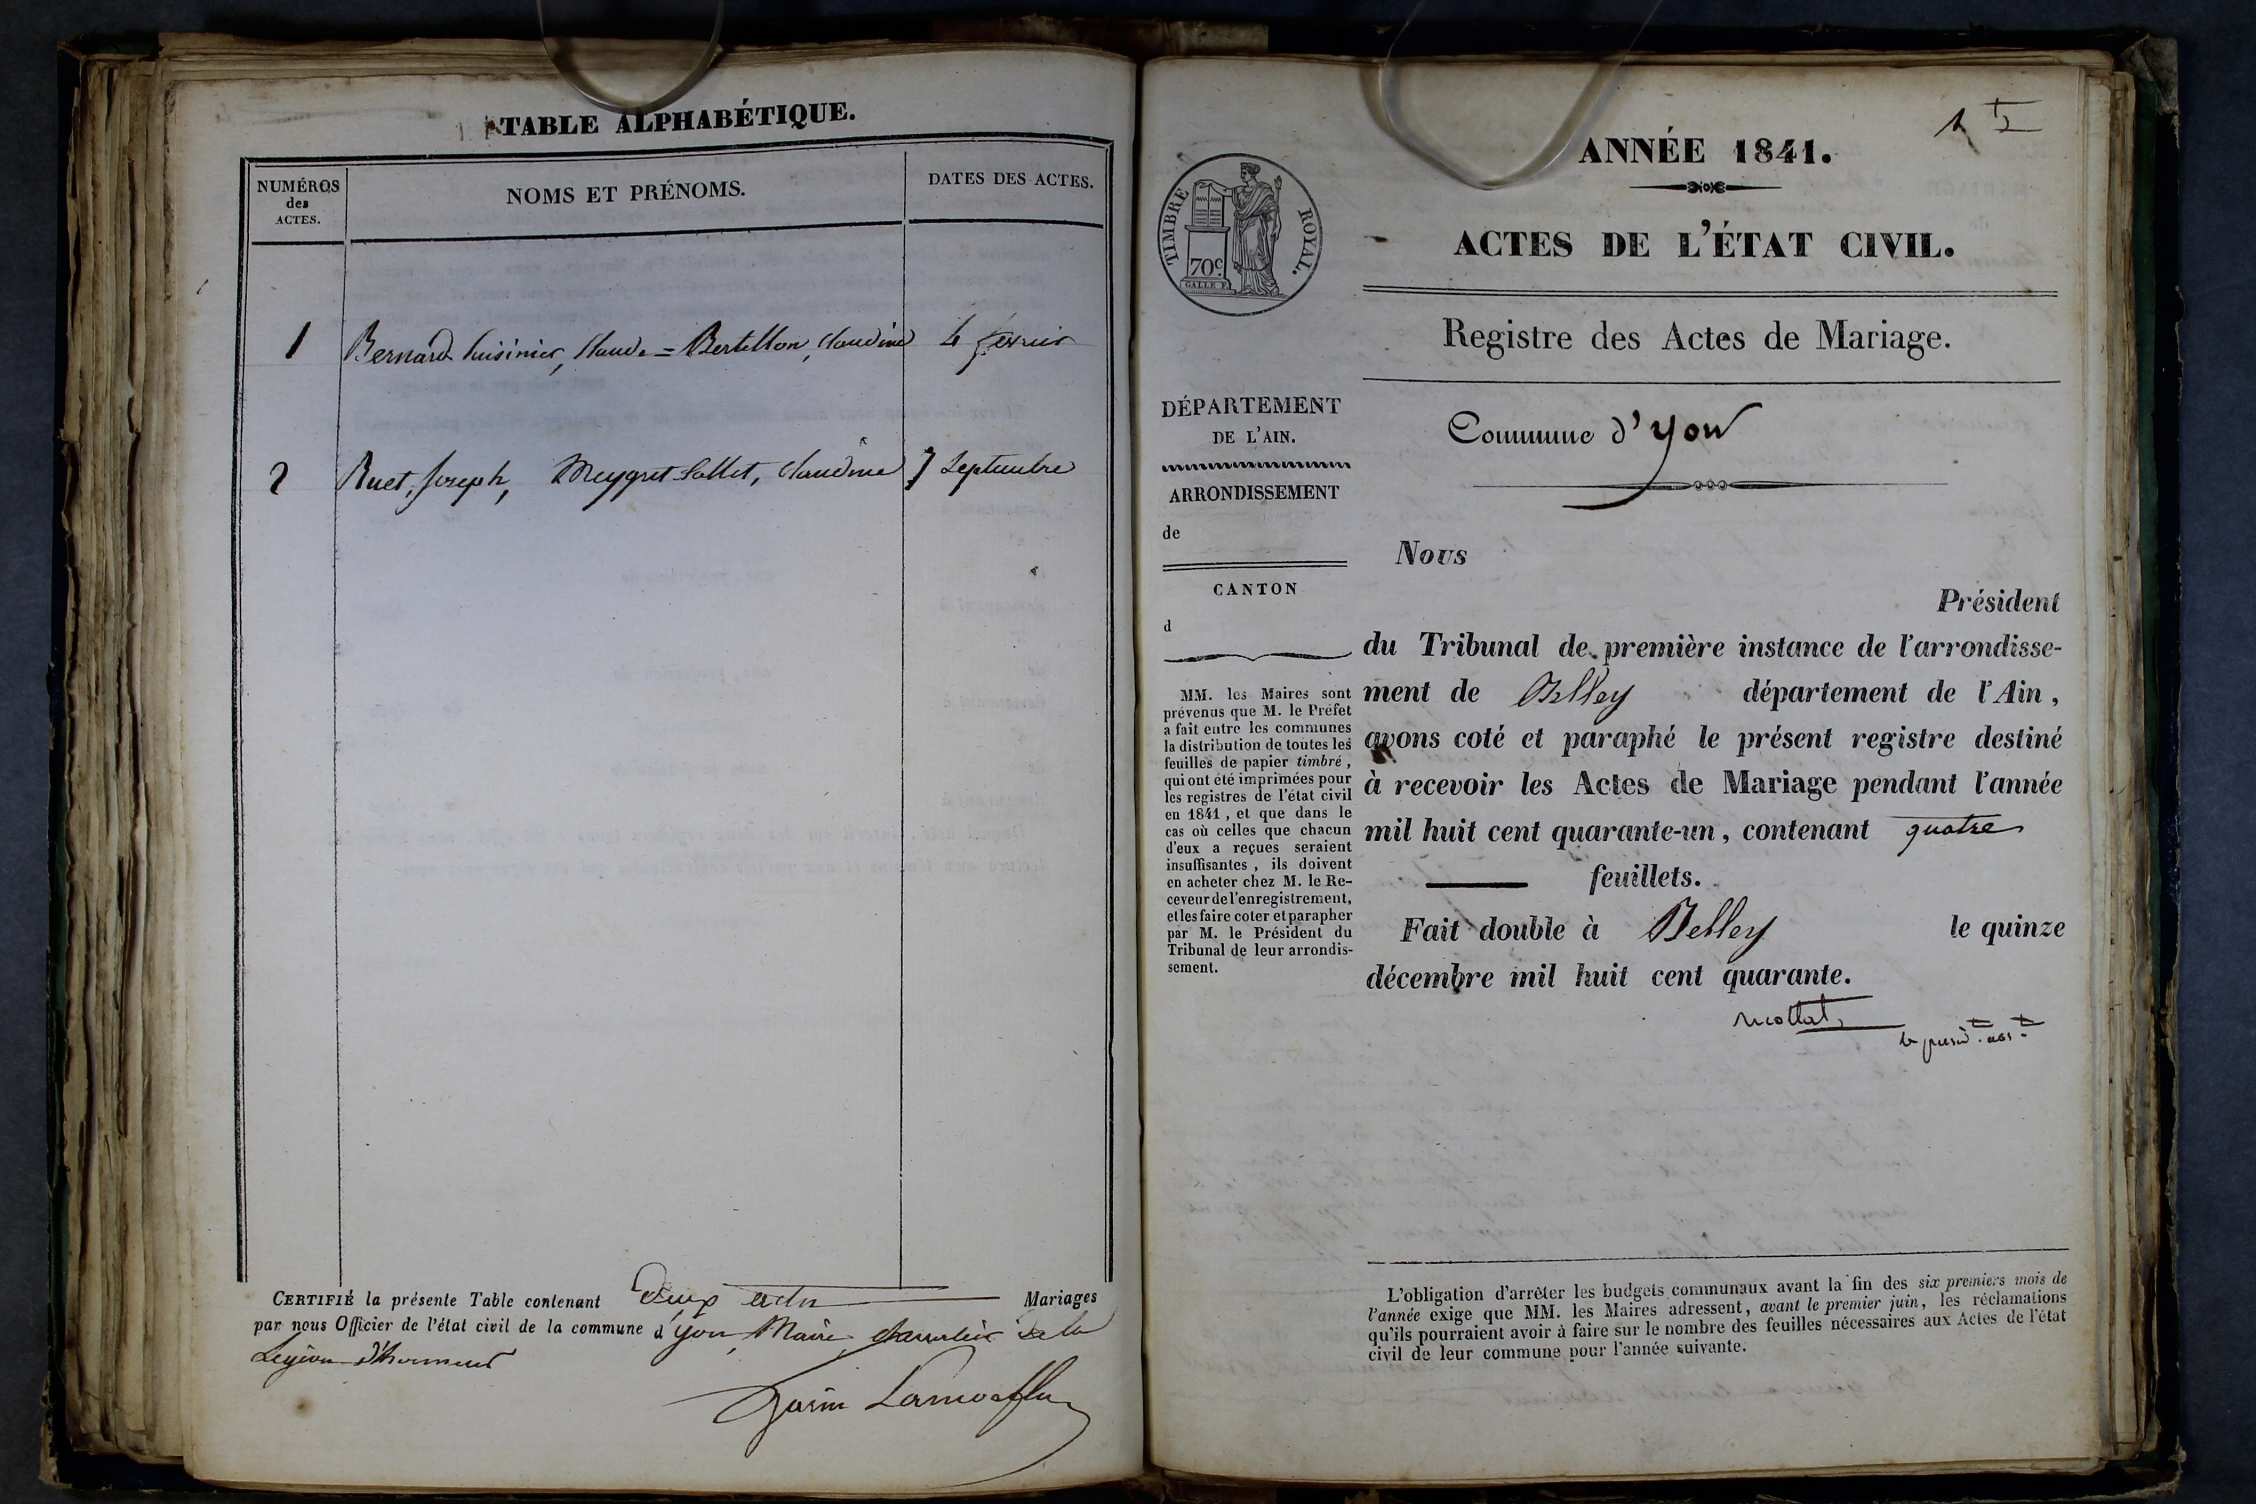 TABLE ALPHABÉTIQUE.
NUMÉROS
des
ACTES.
NOMS ET PRÉNOMS.
DATES DES ACTES.
1 Bernard Cuisinier, Claude = Bertillon, Claudine 4 février
2 Ruet, Joseph, Meygret Collet, Claudine 7 Septembre
CERTIFIÉ la présente Table contenant Deux actes Mariages
par nous Officier de l'état civil de la commune d'yon, Maire, chevalier de la
Legion d'honneur
ANNÉE 1841.
TIMBRE ROYAL.
70c.
GALLE F.
ACTES DE L'ÉTAT CIVIL.
Registre des Actes de Mariage.
Commune d'yon
DÉPARTEMENT
DE L'AIN.
ARRONDISSEMENT
de
CANTON
d
MM. les Maires sont
prévenus que M. le Préfet
a fait entre les communes
la distribution de toutes les
feuilles de papier timbré,
qui ont été imprimées pour
les registres de l'état civil
en 1841, et que dans le
cas où celles que chacun
d'eux a reçues seraient
insuffisantes, ils doivent
en acheter chez M. le Re-
ceveur de l'enregistrement,
et les faire coter et parapher
par M. le Président du
Tribunal de leur arrondis-
sement.
Nous
Président
du Tribunal de première instance de l'arrondisse-
ment de Belley département de l'Ain,
avons coté et paraphé le présent registre destiné
à recevoir les Actes de Mariage pendant l'année
mil huit cent quarante-un, contenant quatre
feuillets.
Fait double à Belley le quinze
décembre mil huit cent quarante.
L'obligation d'arrêter les budgets communaux avant la fin des six premiers mois de
l'année exige que MM. les Maires adressent, avant le premier juin, les réclamations
qu'ils pourraient avoir à faire sur le nombre des feuilles nécessaires aux Actes de l'état
civil de leur commune pour l'année suivante.